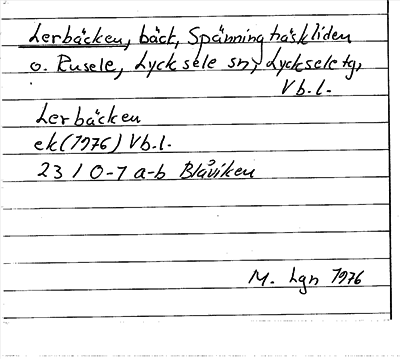 Lerbäcken, bäck, Spänningträskliden
o. Rusele, Lycksele sn, Lycksele tg,
Vb.l.
Lerbäcken
ek(1976) Vb.l.
23 I 0-1 a-b Blåviken
M. Lgn 1976